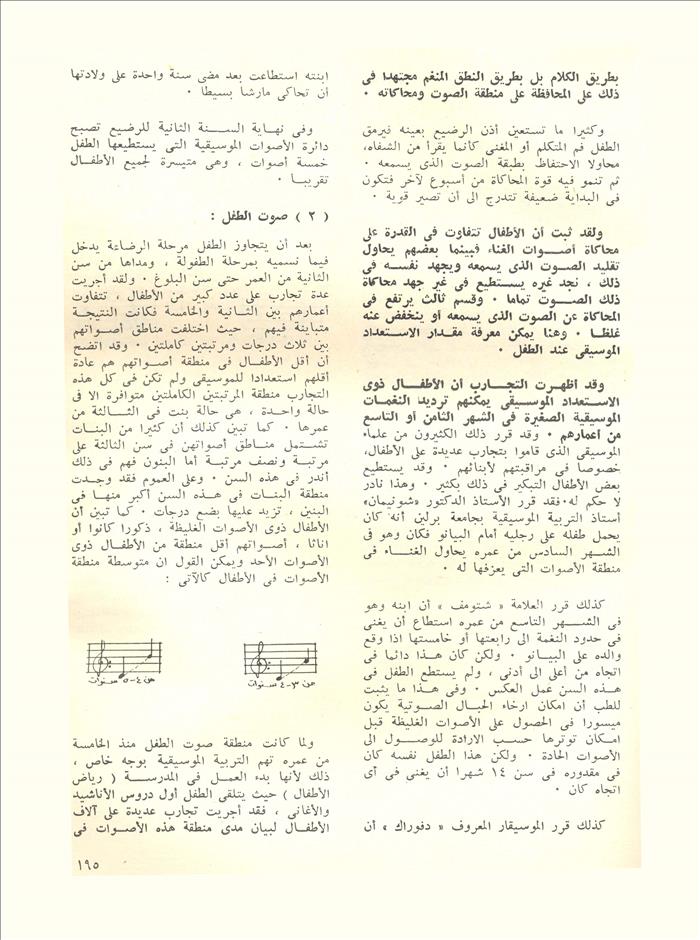 بطريق الكلام بل بطريق النطق المنغم مجتهدا فى
ذلك على المحافظة على منطقة الصوت ومحاكاته ·
وكثيرا ما تستعين أذن الرضيع بعينه فيرمق
الطفل فم المتكلم أو المغنى كأنما يقرأ من الشفاه،
محاولا الاحتفاظ بطبقة الصوت الذى يسمعه ·
ثم تنمو فيه قوة المحاكاة من أسبوع لآخر فتكون
فى البداية ضعيفة تتدرج الى أن تصير قوية ·
ولقد ثبت أن الأطفال تتفاوت فى القدرة على
محاكاة أصوات الغناء فبينما بعضهم يحاول
تقليد الصوت الذى يسمعه ويجهد نفسه فى
ذلك ، نجد غيره يستطيع فى غير جهد محاكاة
ذلك الصوت تماما · وقسم ثالث يرتفع فى
المحاكاة عن الصوت الذى يسمعه أو ينخفض عنه
غلظا · وهنا يمكن معرفة مقدار الاستعداد
الموسيقى عند الطفل ·
وقد أظهرت التجارب أن الأطفال ذوى
الاستعداد الموسيقى يمكنهم ترديد النغمات
الموسيقية الصغيرة فى الشهر الثامن أو التاسع
من أعمارهم · وقد قرر ذلك الكثيرون من علماء
الموسيقى الذى قاموا بتجارب عديدة على الأطفال،
خصوصا فى مراقبتهم لأبنائهم · وقد يستطيع
بعض الأطفال التبكير فى ذلك بكثير · وهذا نادر
لا حكم له·فقد قرر الأستاذ الدكتور «شونيمان»
أستاذ التربية الموسيقية بجامعة برلين أنه كان
يحمل طفله على رجليه أمام البيانو فكان وهو فى
الشهر السادس من عمره يحاول الغناء فى
منطقة الأصوات التى يعزفها له ·
كذلك قرر العلامة « شتومف » أن ابنه وهو
فى الشهر التاسع من عمره استطاع أن يغنى
فى حدود النغمة الى رابعتها أو خامستها اذا وقع
والده على البيانو · ولكن كان هذا دائما فى
اتجاه من أعلى الى أدنى ، ولم يستطع الطفل فى
هذه السن عمل العكس · وفى هذا ما يثبت
للطب أن امكان ارخاء الحبال الصوتية يكون
ميسورا فى الحصول على الأصوات الغليظة قبل
امكان توترها حسب الارادة للوصول الى
الأصوات الحادة · ولكن هذا الطفل نفسه كان
فى مقدوره فى سن ١٤ شهرا أن يغنى فى أى
اتجاه كان ·
كذلك قرر الموسيقار المعروف « دفوراك » أن
ابنته استطاعت بعد مضى سنة واحدة على ولادتها
أن تحاكى مارشا بسيطا ·
وفى نهاية السنة الثانية للرضيع تصبح
دائرة الأصوات الموسيقية التى يستطيعها الطفل
خمسة أصوات ، وهى متيسرة لجميع الأطفال
تقريبا ·
( ٢ ) صوت الطفل :
بعد أن يتجاوز الطفل مرحلة الرضاعة يدخل
فيما نسميه بمرحلة الطفولة ، ومداها من سن
الثانية من العمر حتى سن البلوغ · ولقد أجريت
عدة تجارب على عدد كبير من الأطفال ، تتفاوت
أعمارهم بين الثانية والخامسة فكانت النتيجة
متباينة فيهم ، حيث اختلفت مناطق أصواتهم
بين ثلاث درجات ومرتبتين كاملتين · وقد اتضح
أن أقل الأطفال فى منطقة أصواتهم هم عادة
أقلهم استعدادا للموسيقى ولم تكن فى كل هذه
التجارب منطقة المرتبتين الكاملتين متوافرة الا فى
حالة واحدة ، هى حالة بنت فى الثالثة من
عمرها · كما تبين كذلك أن كثيرا من البنات
تشتمل مناطق أصواتهن فى سن الثالثة على
مرتبة ونصف مرتبة أما البنون فهم فى ذلك
أندر فى هذه السن · وعلى العموم فقد وجدت
منطقة البنات فى هذه السن أكبر منها فى
البنين ، تزيد عليها بضع درجات · كما تبين أن
الأطفال ذوى الأصوات الغليظة ، ذكورا كانوا أو
اناثا ، أصواتهم أقل منطقة من الأطفال ذوى
الأصوات الأحد ويمكن القول ان متوسطة منطقة
الأصوات فى الأطفال كالآتى :
من ٣-٤ سنوات
من ٤-٥ سنوات
ولما كانت منطقة صوت الطفل منذ الخامسة
من عمره تهم التربية الموسيقية بوجه خاص ،
ذلك لأنها بدء العمل فى المدرسة ( رياض
الأطفال ) حيث يتلقى الطفل أول دروس الأناشيد
والأغانى ، فقد أجريت تجارب عديدة على آلاف
الأطفال لبيان مدى منطقة هذه الأصوات فى
١٩٥